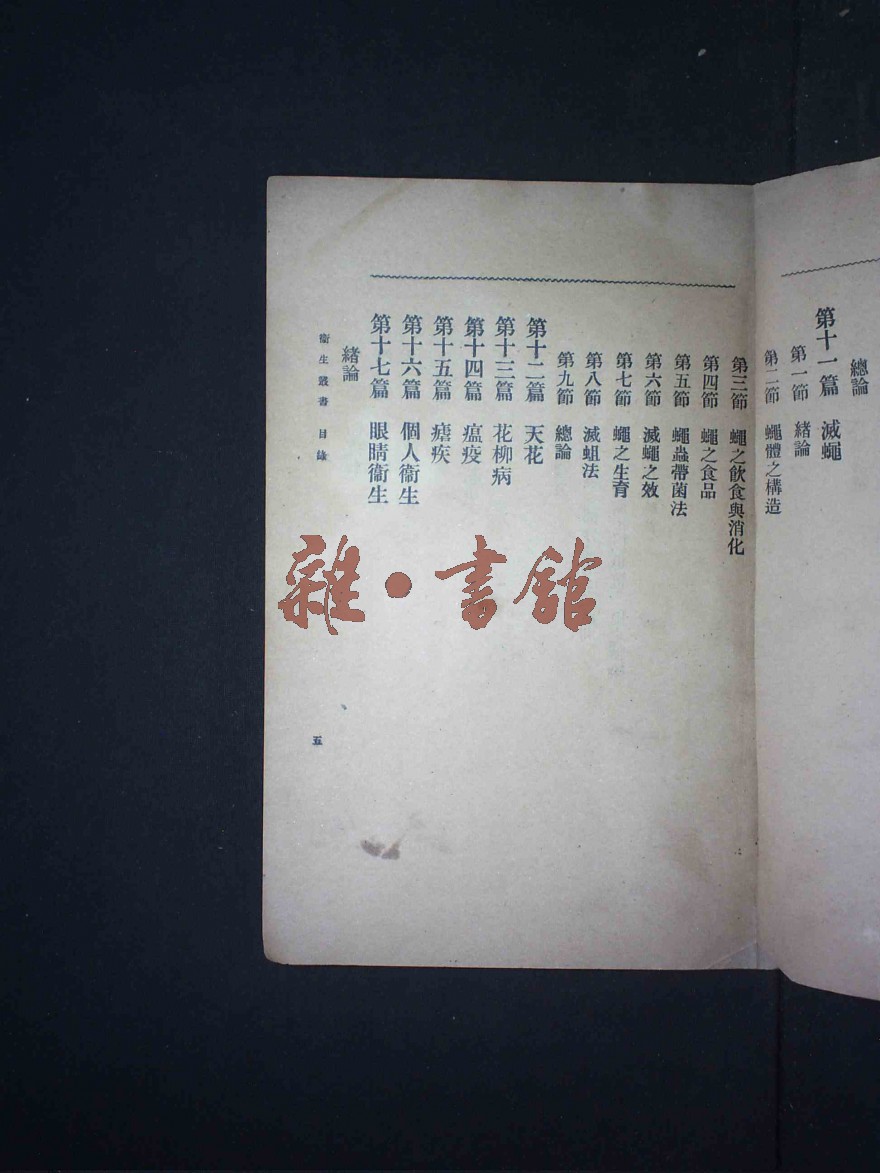 總論
第十一篇 滅蠅
第一節 緒論
第二節 蠅體之構造
第三節 蠅之飲食與消化
第四節 蠅之食品
第五節 蠅蟲帶菌法
第六節 滅蠅之效
第七節 蠅之生育
第八節 滅蛆法
第九節 總論
第十二篇 天花
第十三篇 花柳病
第十四篇 瘟疫
第十五篇 瘧疾
第十六篇 個人衞生
第十七篇 眼睛衞生
緒論
衞生叢書 目錄
五
雜·書館